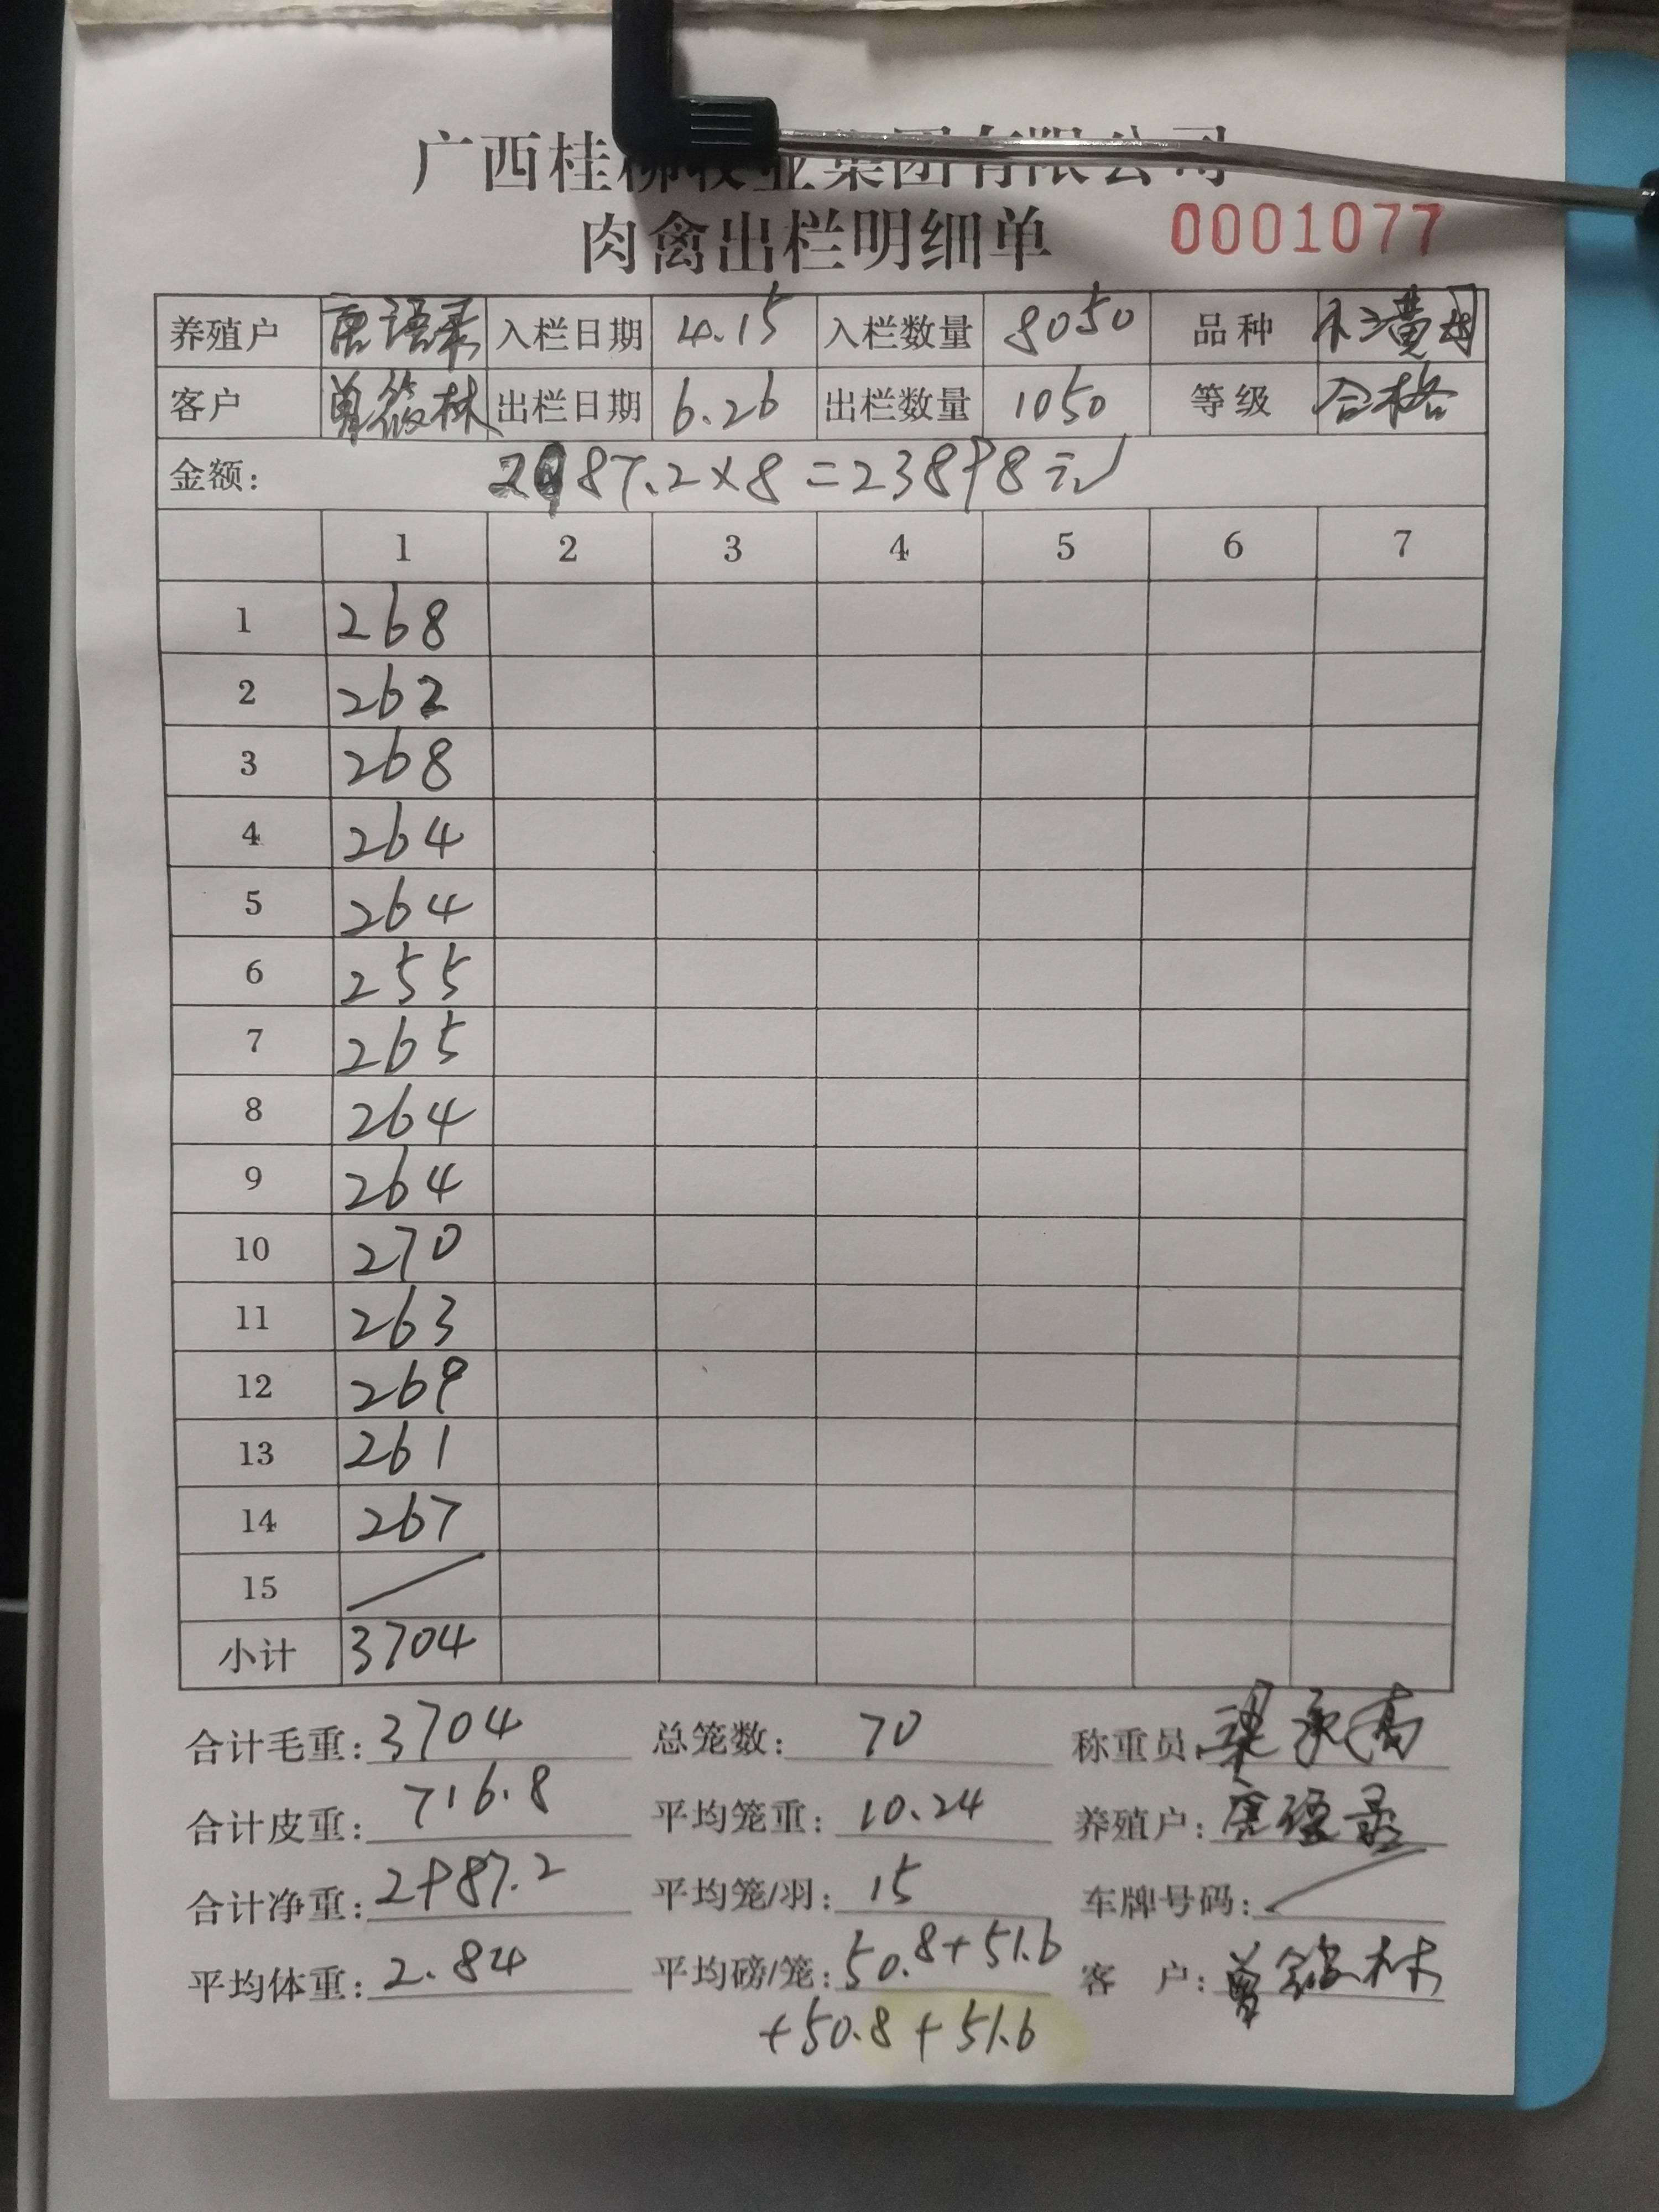 广西桂柳牧业集团有限公司
肉禽出栏明细单 0001077
养殖户 唐语录 入栏日期 4.15 入栏数量 8050 品种
客户 曾筱林 出栏日期 6.26 出栏数量 1050 等级 合格
金额: 2987.2×8=23898元
1 2 3 4 5 6 7
1 268
2 262
3 268
4 264
5 264
6 255
7 265
8 264
9 264
10 270
11 263
12 269
13 261
14 267
15
小计 3704
合计毛重: 3704 总笼数: 70 称重员 梁承高
合计皮重: 716.8 平均笼重: 10.24 养殖户: 唐语录
合计净重: 2987.2 平均笼/羽: 15 车牌号码:
平均体重: 2.84 平均磅/笼: 50.8+51.6 客 户: 曾筱林
+50.8+51.6